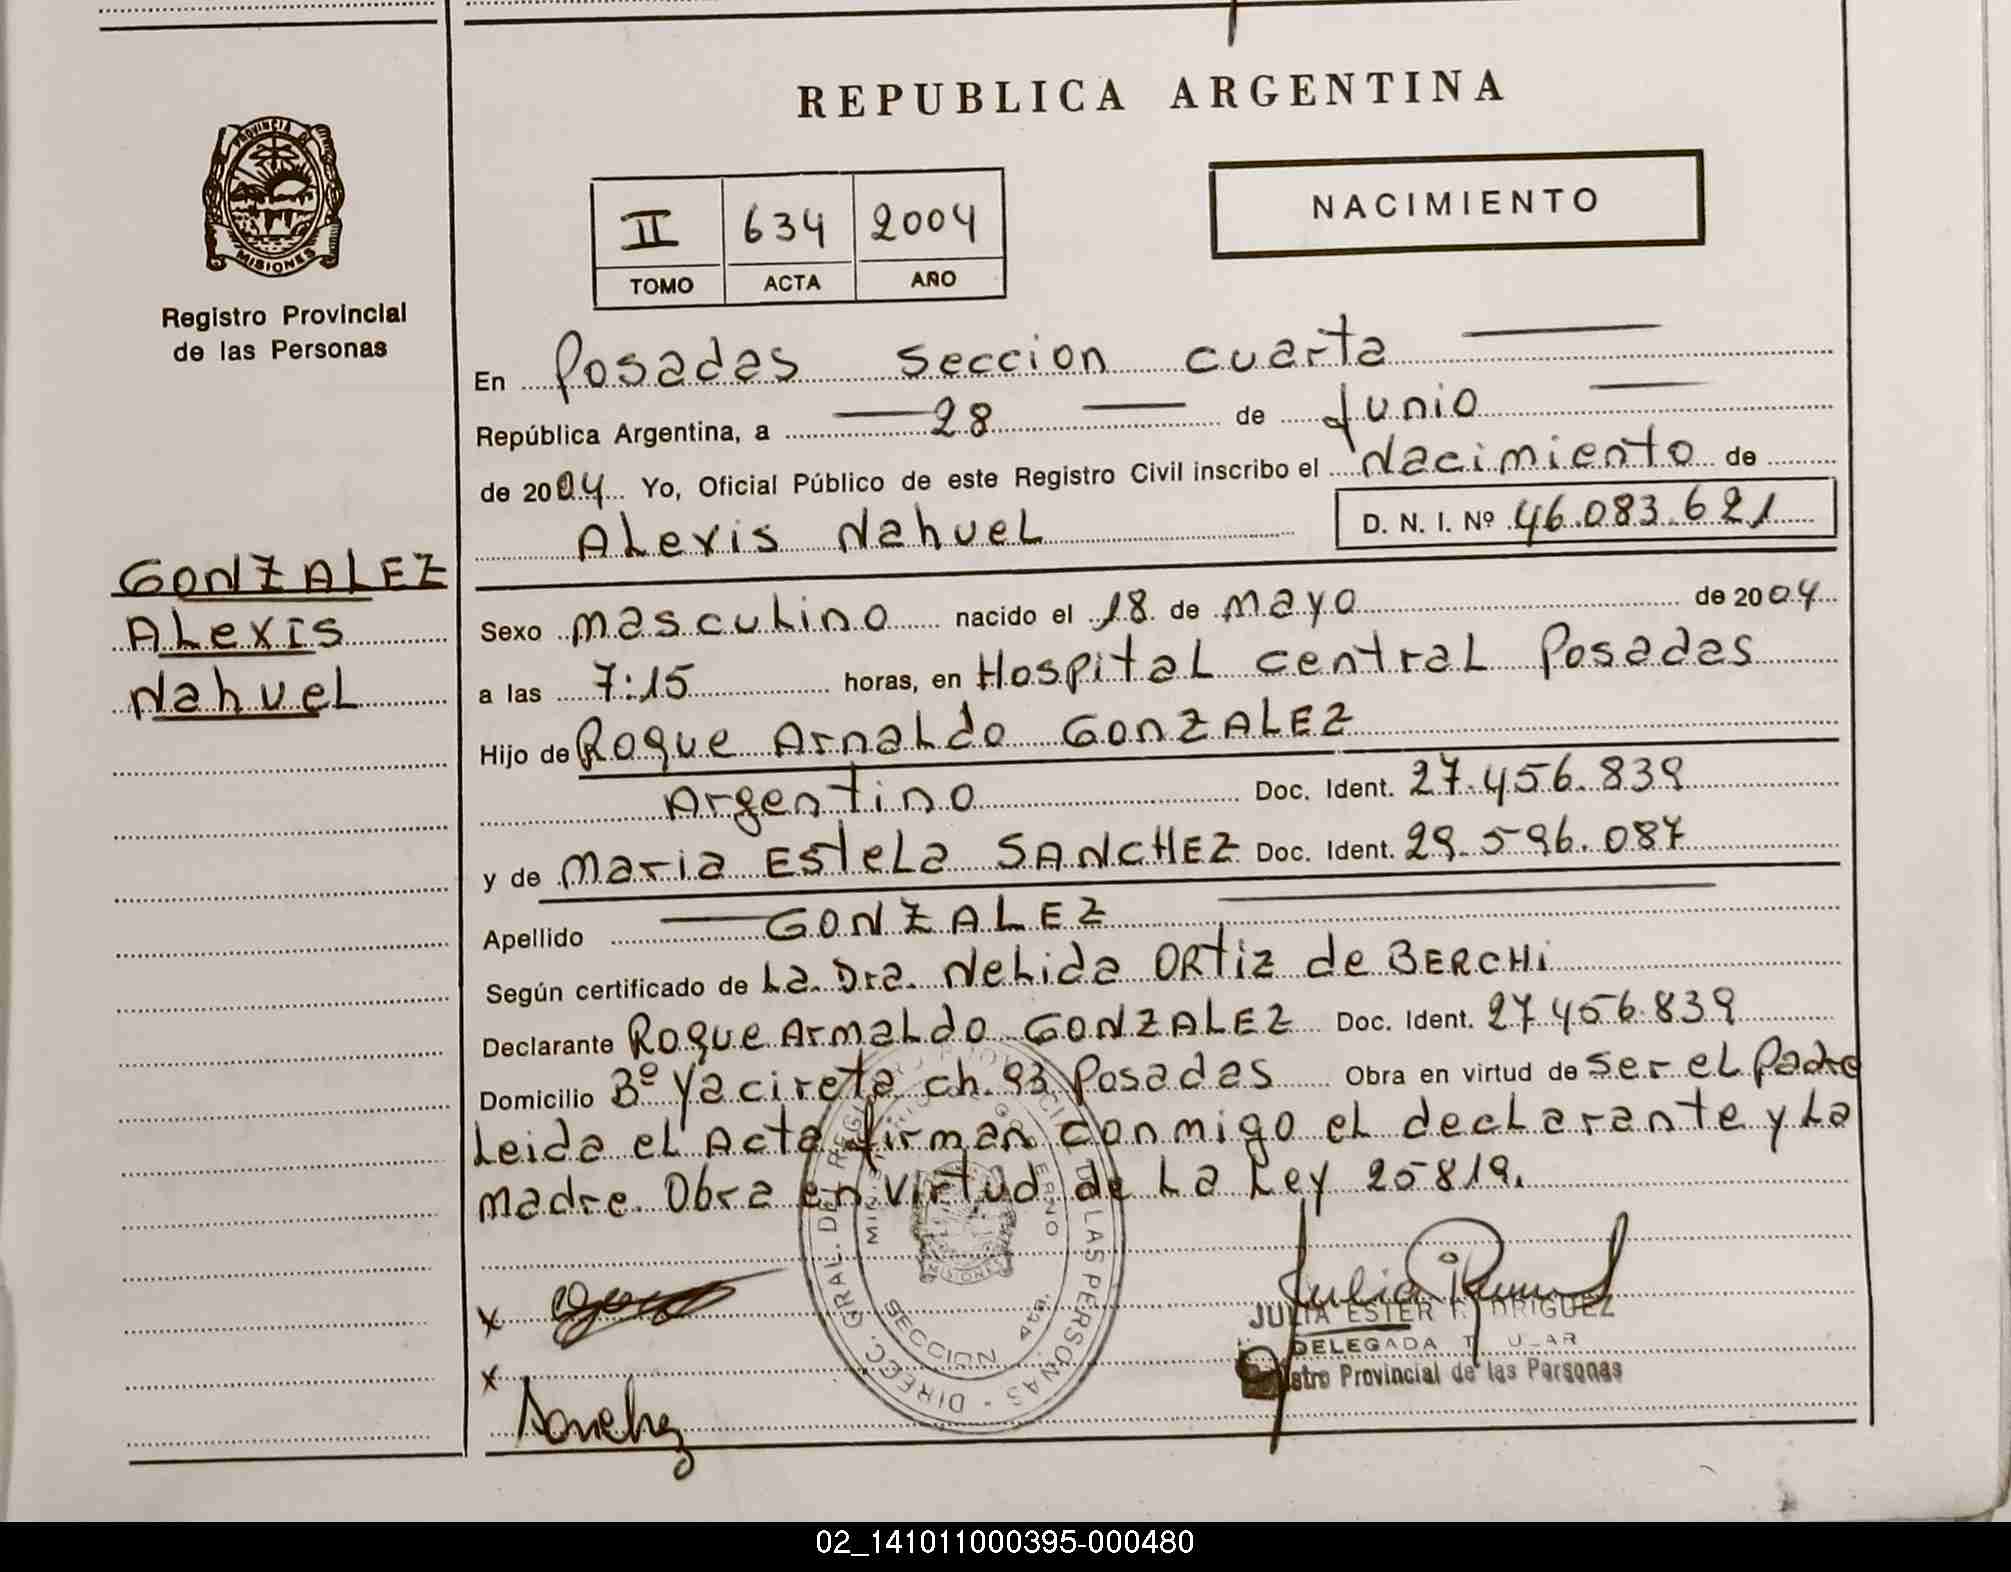 REPUBLICA ARGENTINA
PROVINCIA DE
MISIONES
Registro Provincial
de las Personas
II 634 2004
TOMO ACTA AÑO
NACIMIENTO
En Posadas seccion cuarta
República Argentina, a 28 de Junio
de 2004 Yo, Oficial Público de este Registro Civil inscribo el Nacimiento de
Alexis Nahuel D. N. I. Nº 46.083.621
GONZALEZ
ALEXIS
NahueL
Sexo masculino nacido el 18 de mayo de 2004
a las 7:15 horas, en Hospital central Posadas
Hijo de Roque Arnaldo GONZALEZ
Argentino Doc. Ident. 27.456.839
y de Maria EsteLa SANCHEZ Doc. Ident. 29.596.087
Apellido GONZALEZ
Según certificado de La Dra. Nelida ORtiz de BERCHi
Declarante Roque Armaldo GONZALEZ Doc. Ident. 27.456.839
Domicilio Bº Yacireta ch. 93 Posadas Obra en virtud de ser el Padre
Leida el Acta firman conmigo el declarante y La
madre. Obra en virtud de La Ley 25819.
DIREC. GRAL. DEL REG. PROVINCIAL DE LAS PERSONAS
MINISTERIO DE GOBIERNO
SECCION 4ta
MISIONES
X
X
Sanchez
JULIA ESTER RODRIGUEZ
DELEGADA TITULAR
Registro Provincial de las Personas
02_141011000395-000480